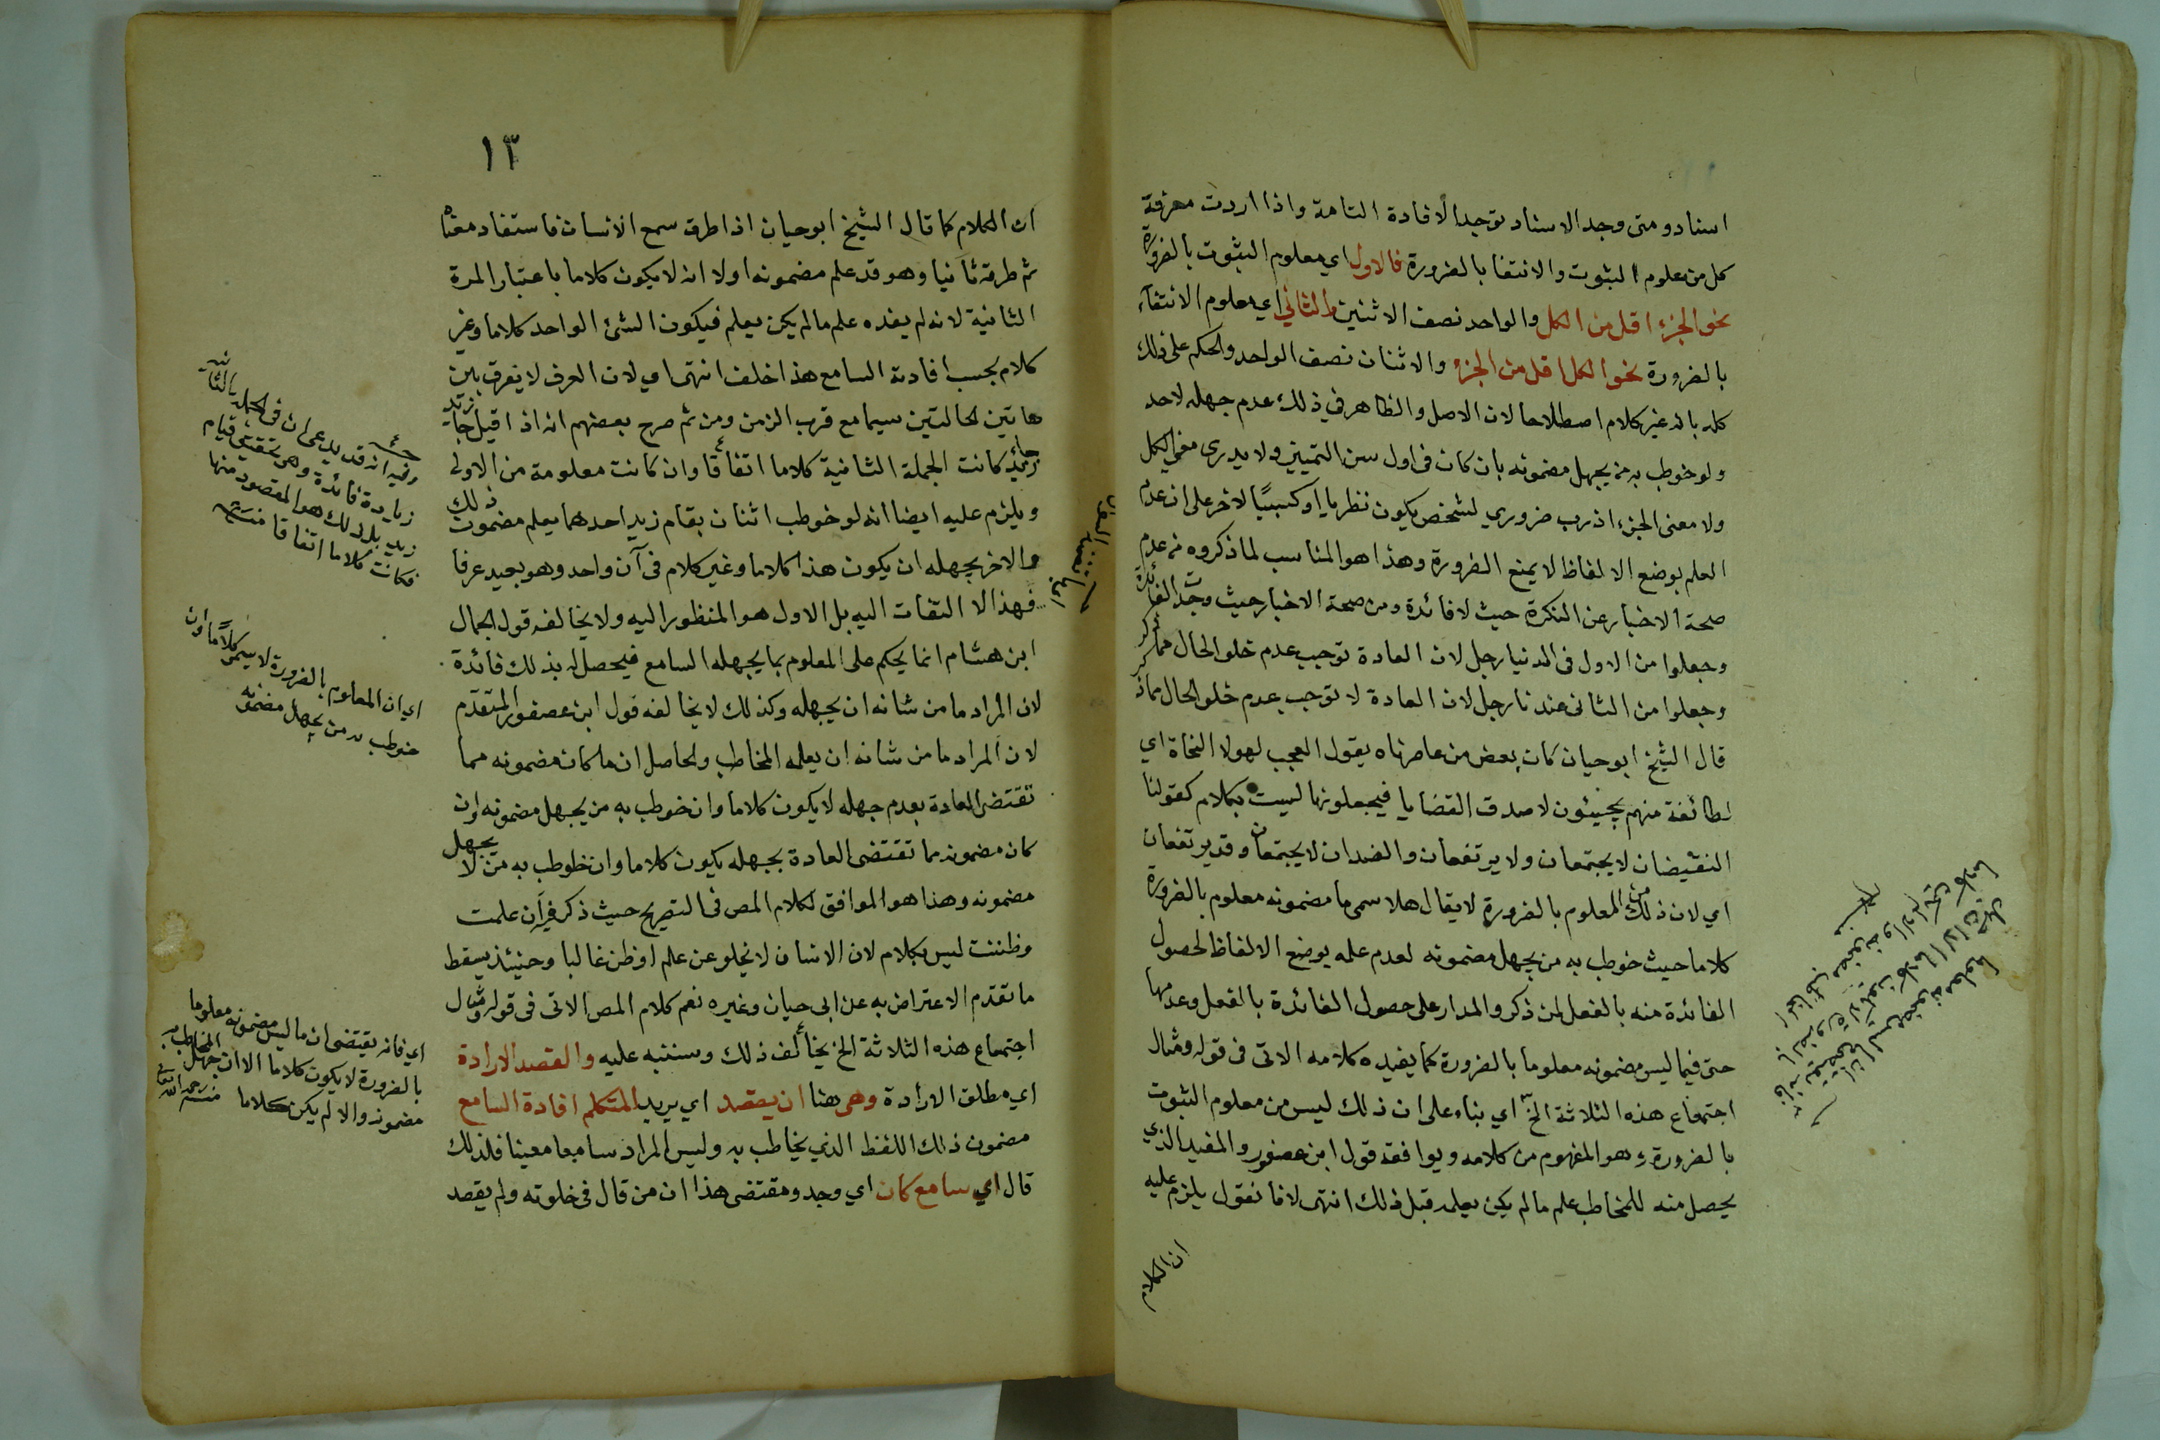 اسناد ومتى وجد الاسناد توجد الافادة التامة واذا اردت معرفة
كل من معلوم الثبوت والانتفا بالضرورة فالاول اي معلوم الثبوت بالضرورة
نحو الجزء اقل من الكل والواحد نصف الاثنين والثاني اي معلوم الانتفآء
بالضرورة نحو الكل اقل من الجزء والاثنان نصف الواحد والحكم على ذلك
كله بانه غير كلام اصطلاحا لان الاصل والظاهر في ذلك عدم جهله لاحد
ولو خوطب به من يجهل مضمونه بان كان في اول سن التمييز ولا يدرى معنى الكل
ولا معنى الجزء اذ رب ضروري لشخص يكون نظريا او كسبيًا لاخر على ان عدم
العلم بوضع الالفاظ لا يمنع الضرورة وهذا هو المناسب لما ذكروه من عدم
صحة الاخبار عن النكرة حيث لا فائدة ومن صحة الاخبار حيث وجدت الفائدة
وجعلوا من الاول في الدنيا رجل لان العادة توجب عدم خلو الحال مما ذكر
وجعلوا من الثانى عندنا رجل لان العادة لا توجب عدم خلو الحال مما ذكر
قال الشيخ ابو حيان كان بعض من عاصرناه يقول العجب لهولا النحاة اي
لطائفة منهم يجيئون لاصدق القضايا فيجعلونها ليست بكلام كقولنا
النقيضان لا يجتمعان ولا يرتفعان والضدان لا يجتمعان وقد يرتفعان
اي لان ذلك من المعلوم بالضرورة لا يقال هلا سمى ما مضمونه معلوم بالضرورة
كلاما حيث خوطب به من يجهل مضمونه لعدم علمه بوضع الالفاظ لحصول
الفائدة منه بالفعل لمن ذكر والمدار على حصول الفائدة بالفعل وعدمها
حتى فيما ليس مضمونه معلوما بالضرورة كما يفيده كلامه الاتى فى قوله ومثال
اجتماع هذه الثلاثة الخ اي بناء على ان ذلك ليس من معلوم الثبوت
بالضرورة وهو المفهوم من كلامه ويوافقه قول ابن عصفور والمفيد الذي
يحصل منه للمخاطب علم ما لم يكن يعلمه قبل ذلك انتهى لانا نقول يلزم عليه
ان الكلام
١٣
ان الكلام كما قال الشيخ ابو حيان اذا طرق سمع الانسان فاستفاد معناه
ثم طرقه ثانيا وهو قد علم مضمونه اولا انه لا يكون كلاما باعتبار المرة
الثانية لانه لم يفده علم ما لم يكن يعلم فيكون الشئ الواحد كلاما وغير
كلام بحسب افادته السامع هذا خلف انتهى اي لان العرف لا يفرق بين
هاتين الحالتين سيما مع قرب الزمن ومن ثم صرح بعضهم انه اذا قيل جا زيد
جا زيد كانت الجملة الثانية كلاما اتفاقا وان كانت معلومة من الاولى
ويلزم عليه ايضا انه لو خوطب اثنان بقام زيد احدهما يعلم مضمون ذلك
والاخر يجهله ان يكون هذا كلاما وغير كلام في آن واحد وهو بعيد عرفا
فهذا لا التفات اليه بل الاول هو المنظور اليه ولا يخالفه قول الجمال
ابن هشام انما يحكم على المعلوم بما يجهله السامع فيحصل له بذلك فائدة
لان المراد ما من شانه ان يجهله وكذلك لا يخالفه قول ابن عصفور المتقدم
لان المراد ما من شانه ان يعلمه المخاطب والحاصل ان ما كان مضمونه مما
تقتضى العادة بعدم جهله لا يكون كلاما وان خوطب به من يجهل مضمونه وان
كان مضمونه مما تقتضى العادة بجهله يكون كلاما وان خوطب به من لا يجهل
مضمونه وهذا هو الموافق لكلام المص فى التصريح حيث ذكر فيه ان علمت
وظننت ليس بكلام لان الانسان لا يخلو عن علم او ظن غالبا وحينئذ يسقط
ما تقدم الاعتراض به عن ابى حيان وغيره نعم كلام المص الاتى فى قوله ومثال
اجتماع هذه الثلاثة الخ يخالف ذلك وسننبه عليه والقصد الارادة
اي مطلق الارادة وهى هنا ان يقصد اي يريد المتكلم افادة السامع
مضمون ذلك اللفظ الذي يخاطب به وليس المراد سامعا معينا فلذلك
قال اي سامع كان اي وجد ومقتضى هذا ان من قال فى خلوته ولم يقصد
وفيه انه قد يدعى ان فى الجملة الثانية
زيادة فائدة وهو تحقيق قيام
زيد بل ذلك هو المقصود منها
فكانت كلاما اتفاقا
اي ان المعلوم بالضرورة لا يسمى كلاما وان
خوطب به من يجهل مضمونه
اي فانه يقتضى ان ما ليس مضمونه معلوما
بالضرورة لا يكون كلاما الا ان جهل المخاطب به
مضمونه والا لم يكن كلاما